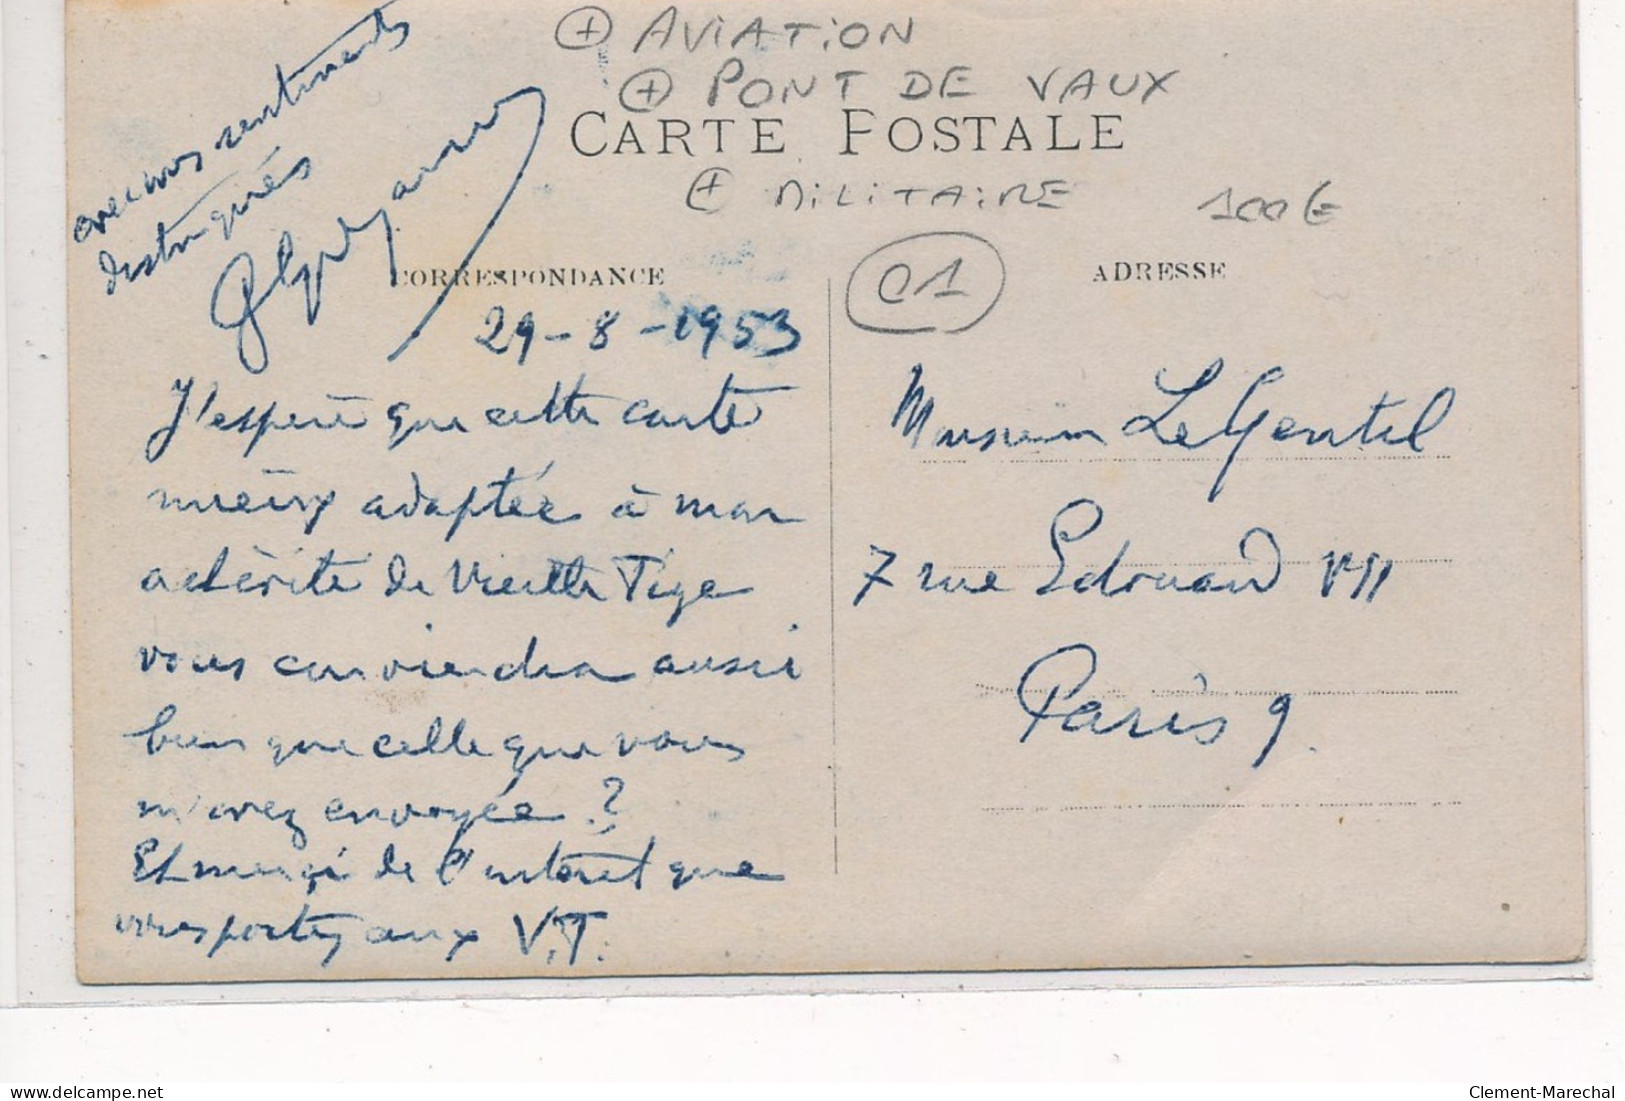 + AVIATION
+ PONT DE VAUX
CARTE POSTALE
+ MILITAIRE
100€
CORRESPONDANCE
01
ADRESSE
29-8-1953
J'espère que cette carte
mieux adaptée à mon
activité de Vieille Tige
vous conviendra aussi
bien que celle que vous
m'avez envoyée ?
Et merci de l'intérêt que
vous portez aux V.T.
avec mes sentiments
distingués
Monsieur Le Gentil
7 rue Edouard VII
Paris 9
delcampe.net
Clement-Marechal